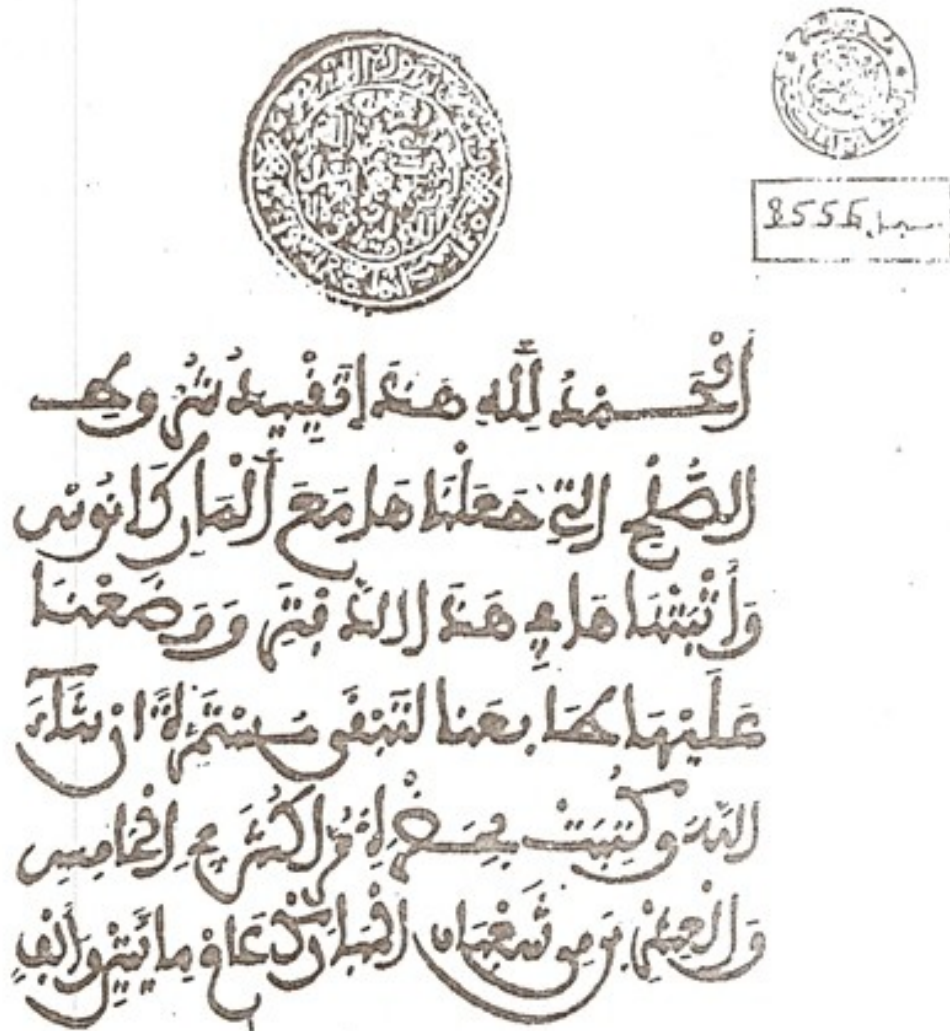 سجل 8556
اَلْحَمْدُ لِلَّهِ هَذَا تَقْيِيدُ شُرُوط
الصُّلْحِ التِي جَعَلْنَاهَا مَعَ اَلْمَارِكَانُوس
وَأَثْبَتْنَاهَا فِي هَذَا الدفتَرِ وَوَضَعْنَا
عَلَيْهَا طَابعنا لتبقى مُسْتَمِرَّة ان شَآءَ
اللهُ وكُتِبَتْ بحضرة مراكش في الخَامِسِ
وَالْعِشْرِينَ مِن شَعْبَان المُبَارَكِ عام مِائَتَيْنِ وَأَلْفٍ